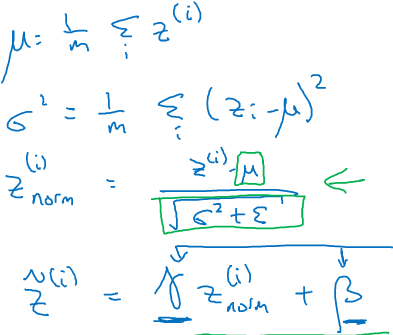 μ = 1/m Σ_i z^(i)
σ² = 1/m Σ_i (z_i - μ)²
z_norm^(i) = (z^(i) - μ) / √(σ² + ε) ←
z̃^(i) = γ z_norm^(i) + β